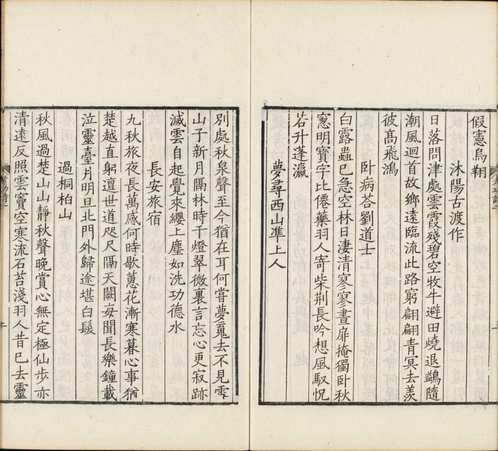 假憲烏翔
沐陽古渡作
日落問津處雲霞殘碧空牧牛避田燒退鷁隨
潮風迴首故鄉遠臨流此路窮翩翩青冥去羨
彼高飛鴻
卧病荅劉道士
白露蟲已急空林日淒清寥寥晝扉掩獨卧秋
窻明寶字比僊藥羽人寄柴荆長吟想風馭怳
若升蓬瀛
夢尋西山凖上人
別處秋泉聲至今猶在耳何嘗夢䰟去不見雪
山子新月隔林時千燈翠微裏言忘心更寂跡
滅雲自起覺來纓上塵如洗功德水
長安旅宿
九秋旅夜長萬感何時歇蕙花漸寒暮心事猶
楚越直躬遺世道咫尺隔天闕每聞長樂鐘載
泣靈臺月明旦北門外歸途堪白髮
過桐柏山
秋風過楚山山靜秋聲晚賞心無定極仙步亦
清遠反照雲竇空寒流石苔淺羽人昔已去靈